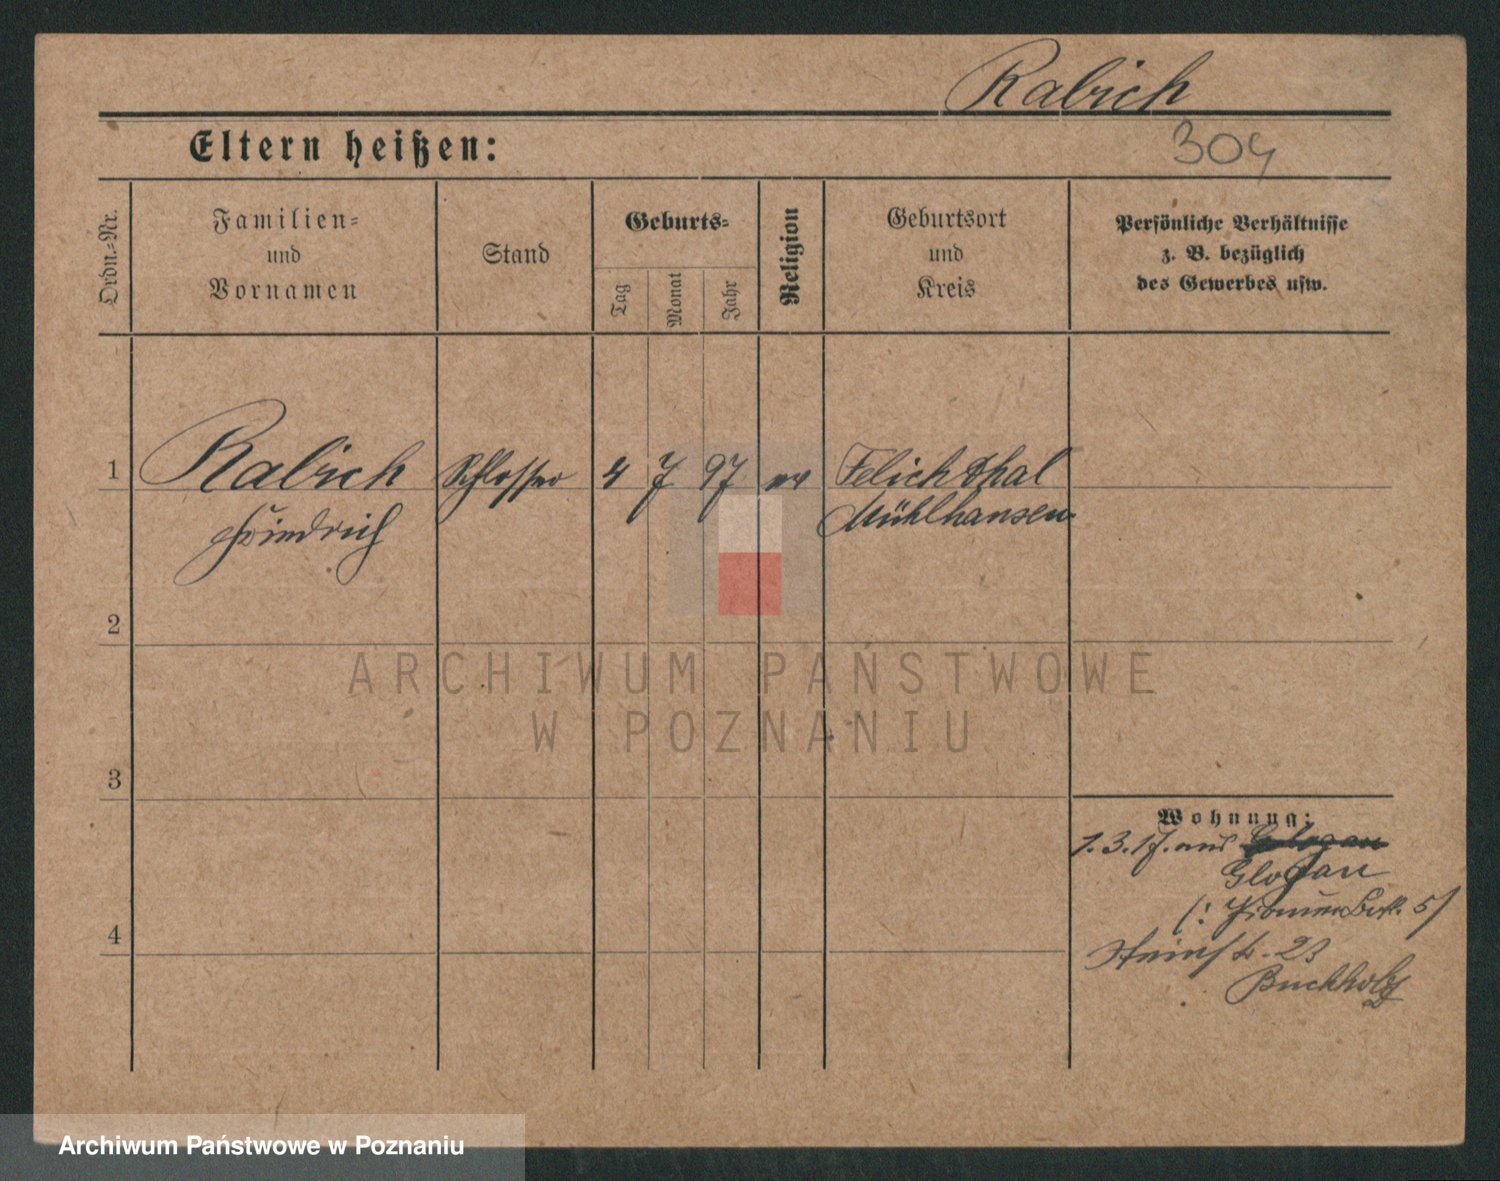 Rabich
304
Eltern heißen:
Ordn.-Nr.
Familien-
und
Vornamen
Stand
Geburts-
Tag
Monat
Jahr
Religion
Geburtsort
und
Kreis
Persönliche Verhältnisse
z. B. bezüglich
des Gewerbes usw.
1
Rabich
Friedrich
Schlosser
4
7
97
ev
Felichthal
Mühlhausen
2
3
4
Wohnung:
1.3.17. aus Glogau
Glogau
(: Pionier Batl. 5/
Steinstr. 23
Buchholz
ARCHIWUM PAŃSTWOWE
W POZNANIU
Archiwum Państwowe w Poznaniu